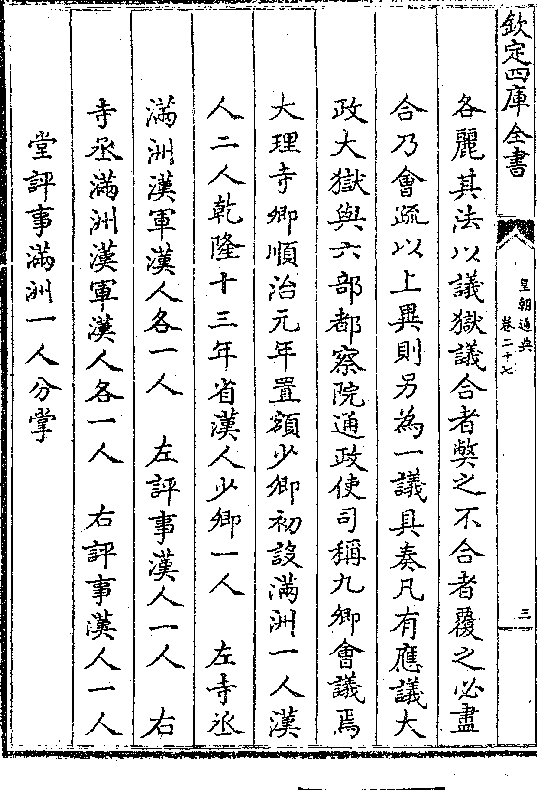 欽定四庫全書
皇朝通典
卷二十七
三
各麗其法以議獄議合者獘之不合者覆之必盡
合乃會疏以上異則另為一議具奏凡有應議大
政大獄與六部都察院通政使司稱九卿會議焉
大理寺卿順治元年置額少卿初設滿洲一人漢
人二人乾隆十三年省漢人少卿一人　左寺丞
滿洲漢軍漢人各一人　左評事漢人一人　右
寺丞滿洲漢軍漢人各一人　右評事漢人一人
堂評事滿洲一人分掌